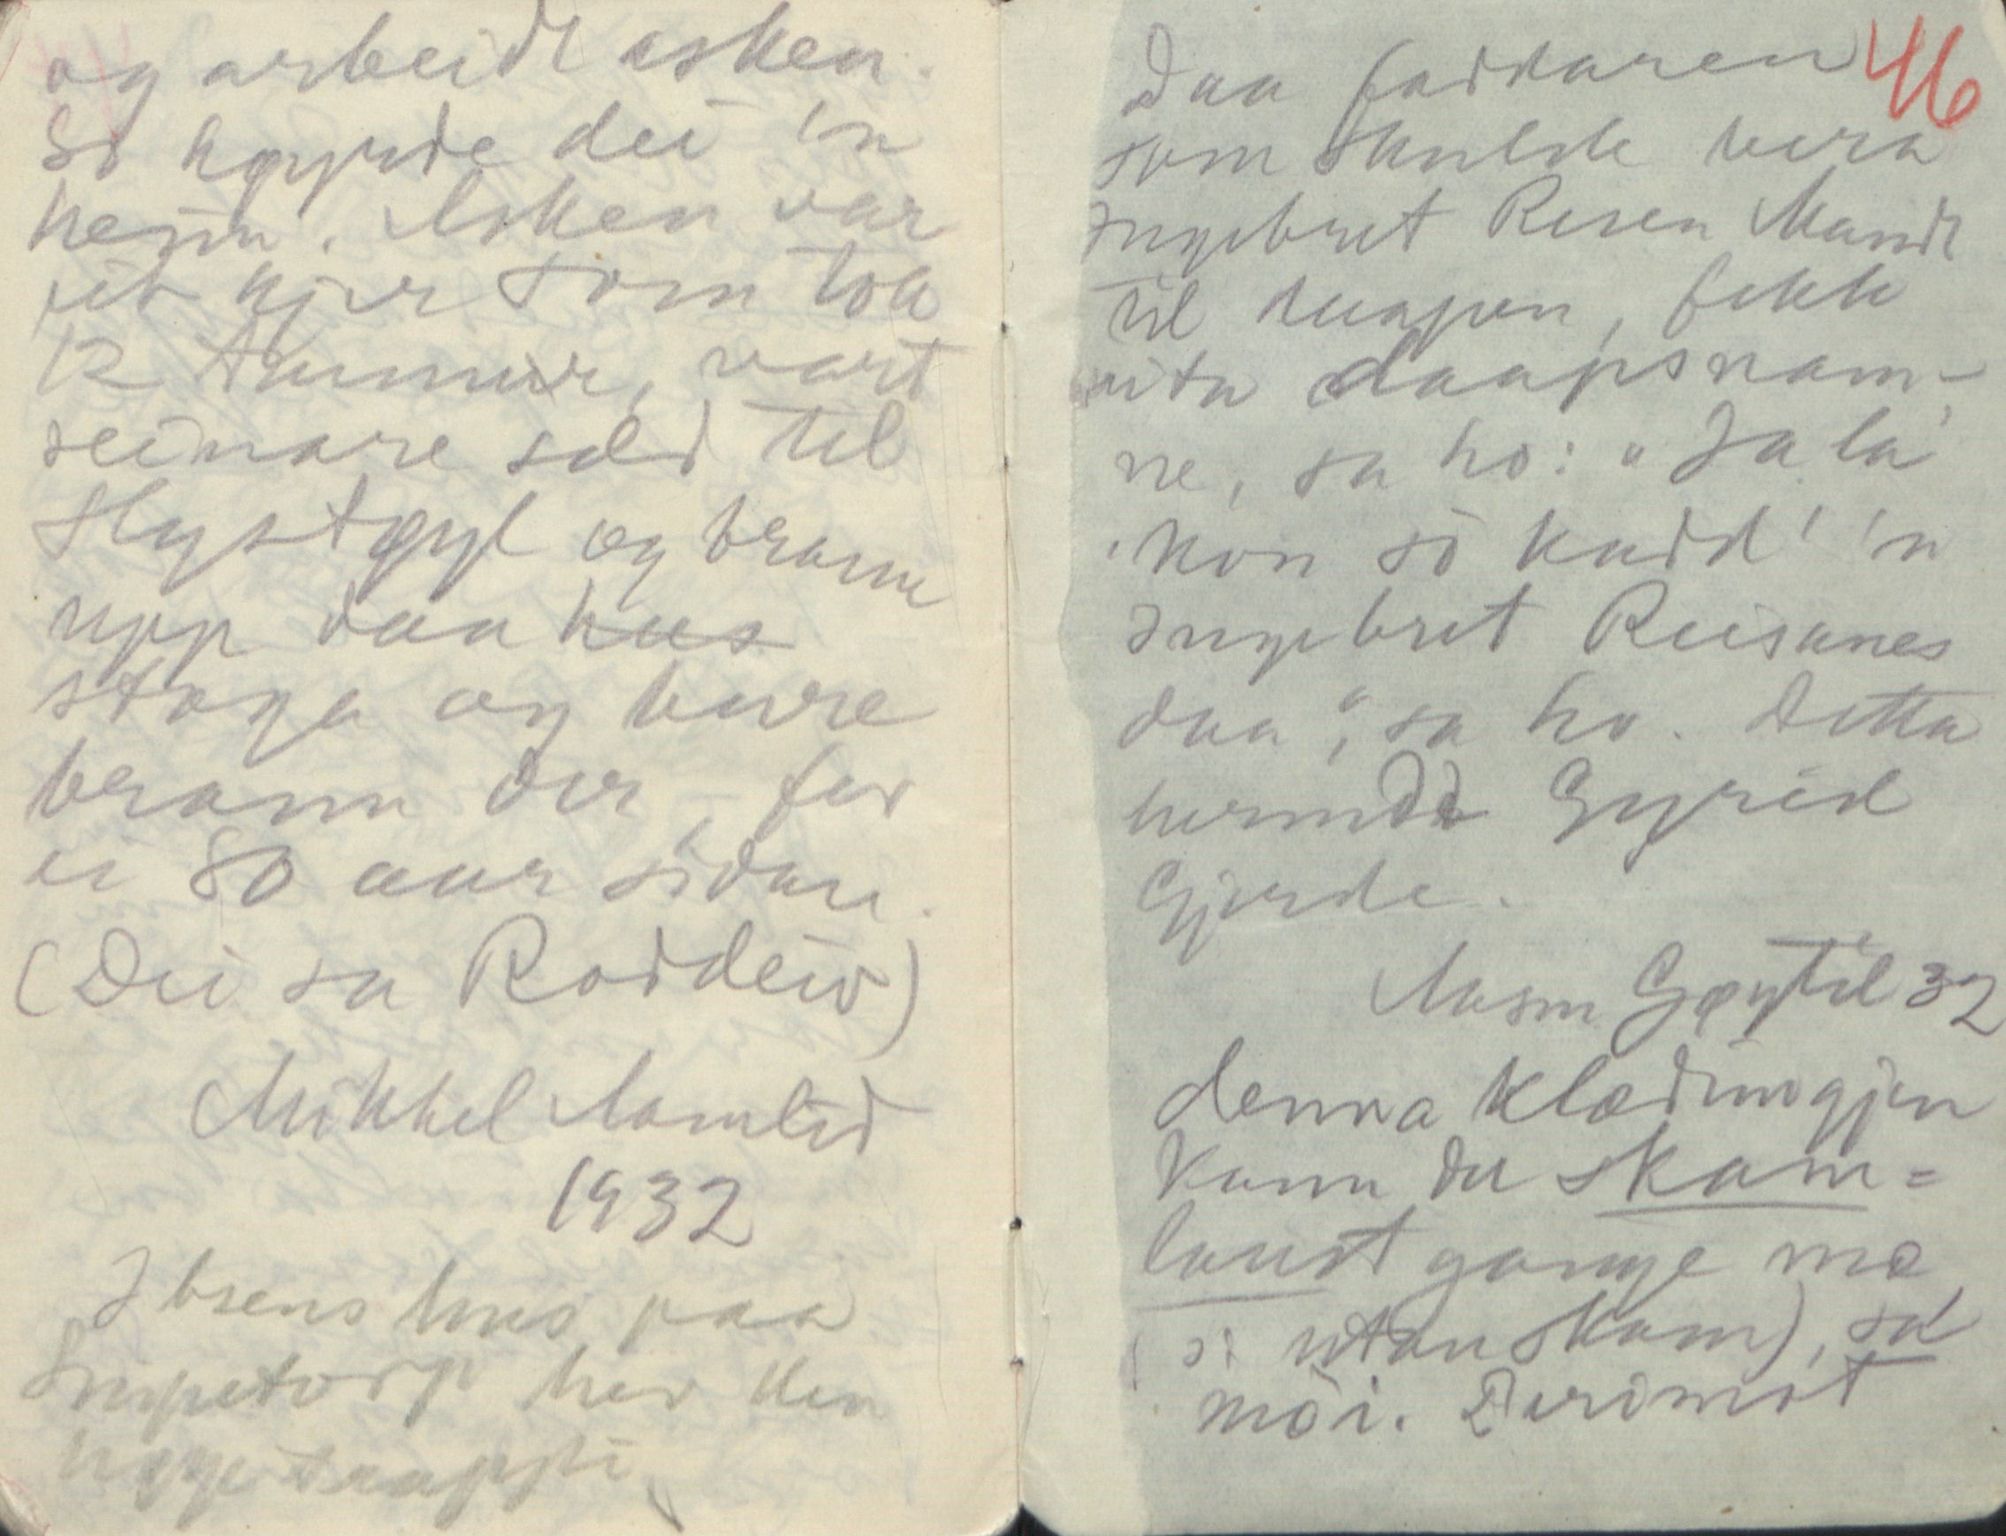 og arbeidt asken.
So køyrde dei 'n
heim. Asken var
eit kjer som tok
12 tunnur, vart
seinare seld til
Høystøyl og brann
upp daa hus
stoga og bure
brann der for
ei 80 aar sidan.
(Dei sa Roddeiv)
Mikkel Aamlid
1932
Ibsens hus paa
Snipetorp hev ken
høge trappi
46
Daa faddaren
som skulde bera
Ingebret Resen Mandt
til kaapen, fekk
vita daapsnam-
ne, sa ho: "Ja la
kon so kadd' 'n
Ingebret Reisanes
daa", sa ho. Detta
hermde Gyrid
Gjerde.
Aasm Gøytil 32
denna klædningjen
kann du skam=
laust gange mæ
(ɔ: utan skam), sa
mòi. Derimot